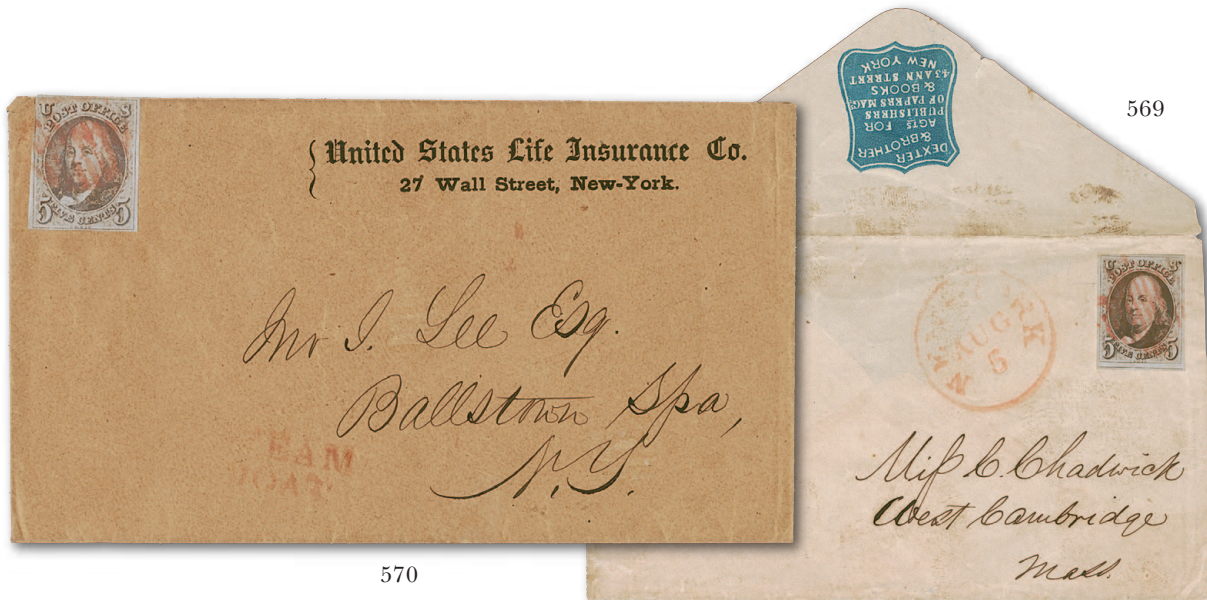 U S
POST OFFICE
5 FIVE CENTS 5
United States Life Insurance Co.
27 Wall Street, New-York.
Mr I. Lee Esq.
Ballstown Spa,
N.Y.
570
DEXTER
& BROTHER
AGTS FOR
PUBLISHERS
OF PAPERS MAG.
& BOOKS
43 ANN STREET
NEW YORK
569
U S
POST OFFICE
5 FIVE CENTS 5
NEW YORK
AUG
5
Miſs C. Chadwick
West Cambridge
Mass.